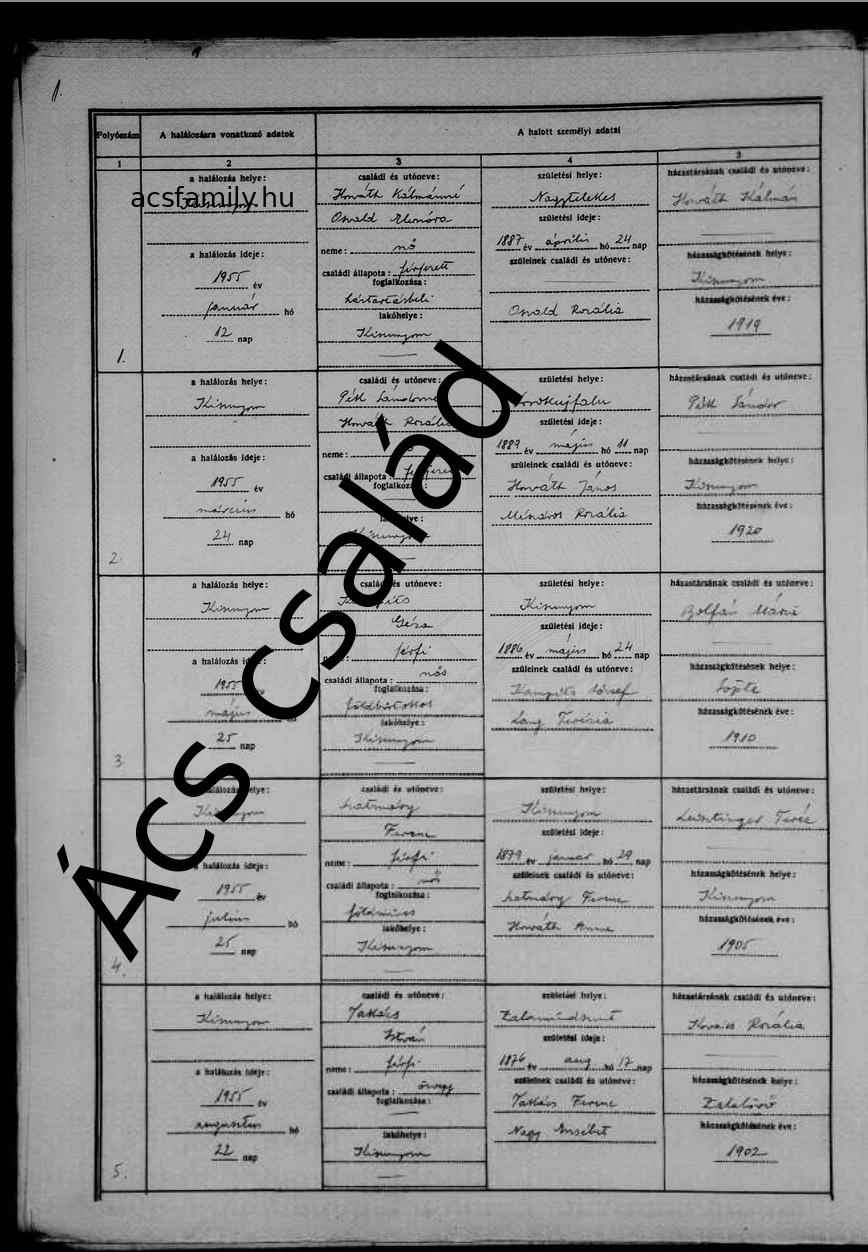 1.
Folyószám
A halálozásra vonatkozó adatok
A halott személyi adatai
1
2
3
4
5
a halálozás helye:
acsfamily.hu
Kisunyom
a halálozás ideje:
1955 év
január hó
12 nap
családi és utóneve:
Horváth Kálmánné
Osvald Eleonóra
neme: nő
családi állapota: férjezett
foglalkozása:
háztartásbeli
lakóhelye:
Kisunyom
születési helye:
Nagytelekes
születési ideje:
1887 év április hó 24 nap
szüleinek családi és utóneve:
Osvald Rozália
házastársának családi és utóneve:
Horváth Kálmán
házasságkötésének helye:
Kisunyom
házasságkötésének éve:
1919
1.
a halálozás helye:
Kisunyom
a halálozás ideje:
1955 év
március hó
24 nap
családi és utóneve:
Pék Sándorné
Horváth Rozália
neme:
családi állapota:
foglalkozása:
lakóhelye:
Kisunyom
születési helye:
születési ideje:
1889 év május hó 11 nap
szüleinek családi és utóneve:
Horváth János
Mészáros Rozália
házastársának családi és utóneve:
Pék Sándor
házasságkötésének helye:
Kisunyom
házasságkötésének éve:
1920
2.
a halálozás helye:
Kisunyom
a halálozás ideje:
1955 év
május hó
25 nap
családi és utóneve:
Géza
férfi
családi állapota: nős
foglalkozása:
földbirtokos
lakóhelye:
Kisunyom
születési helye:
Kisunyom
születési ideje:
1886 év május hó 24 nap
szüleinek családi és utóneve:
József
Láng Terézia
házastársának családi és utóneve:
Mária
házasságkötésének helye:
Sopte
házasságkötésének éve:
1910
3.
halálozás helye:
Kisunyom
a halálozás ideje:
1955 év
julius hó
25 nap
családi és utóneve:
Hatmáry
Ferenc
neme: férfi
családi állapota: nős
foglalkozása:
földműves
lakóhelye:
Kisunyom
születési helye:
Kisunyom
születési ideje:
1879 év január hó 29 nap
szüleinek családi és utóneve:
Hatmáry Ferenc
Horváth Anna
házastársának családi és utóneve:
Teréz
házasságkötésének helye:
Kisunyom
házasságkötésének éve:
1905
4.
a halálozás helye:
Kisunyom
a halálozás ideje:
1955 év
augusztus hó
22 nap
családi és utóneve:
Takács
István
neme: férfi
családi állapota: özvegy
foglalkozása:
lakóhelye:
Kisunyom
születési helye:
születési ideje:
1876 év aug hó 17 nap
szüleinek családi és utóneve:
Takács Ferenc
Nagy Erzsébet
házastársának családi és utóneve:
Kovács Rozália
házasságkötésének helye:
Zalalövő
házasságkötésének éve:
1902
5.
Ács család